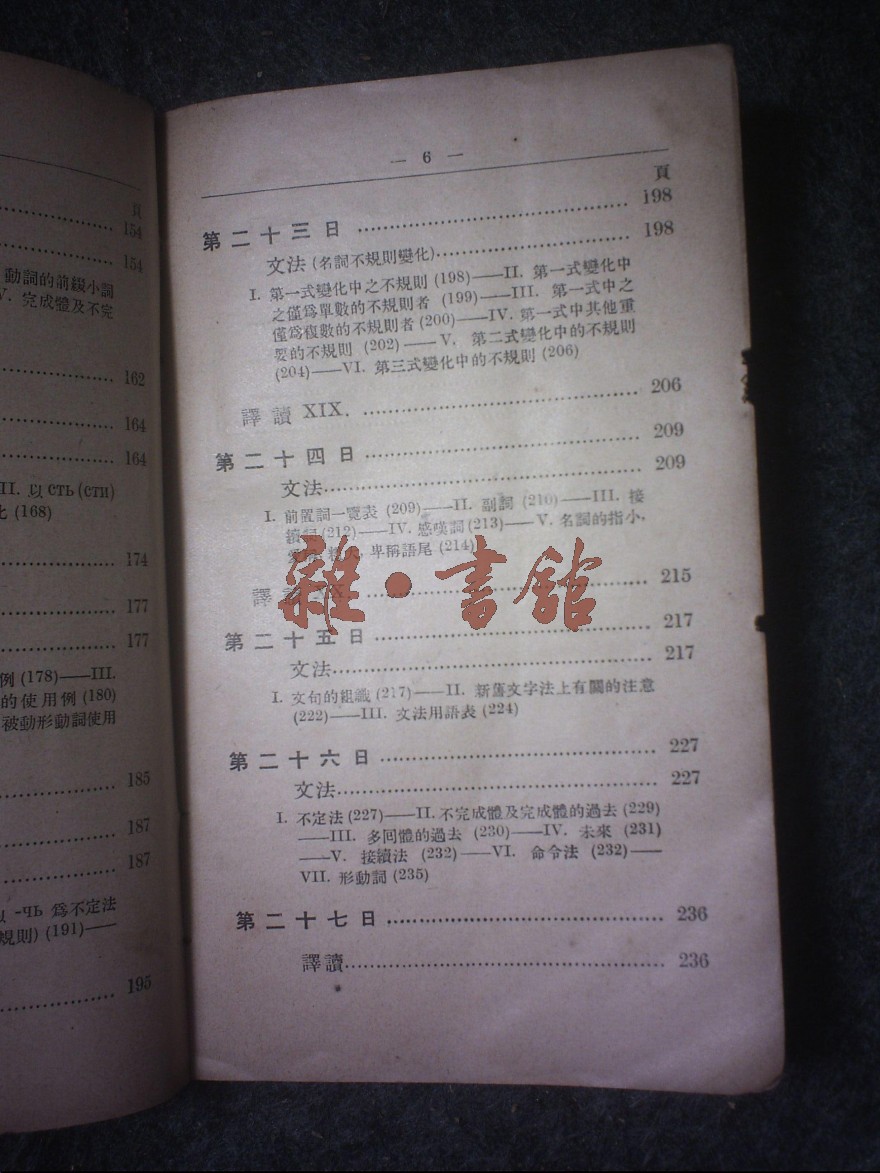 頁
154
154
動詞的前綴小詞
V. 完成體及不完
162
164
164
II. 以 сть (сти)
(168)
174
177
177
例 (178)——III.
的使用例 (180)
被動形動詞使用
185
187
187
-чь 爲不定法
規則) (191)——
195
— 6 —
頁
第二十三日 198
文法 (名詞不規則變化) 198
I. 第一式變化中之不規則 (198)——II. 第一式變化中
之僅爲單數的不規則者 (199)——III. 第一式中之
僅爲複數的不規則者 (200)——IV. 第一式中其他重
要的不規則 (202)——V. 第二式變化中的不規則
(204)——VI. 第三式變化中的不規則 (206)
譯讀 XIX. 206
第二十四日 209
文法 209
I. 前置詞一覽表 (209)——II. 副詞 (210)——III. 接
續詞 (212)——IV. 感嘆詞 (213)——V. 名詞的指小,
卑稱語尾 (214)
譯 215
雜·書館
第二十五日 217
文法 217
I. 文句的組織 (217)——II. 新舊文字法上有關的注意
(222)——III. 文法用語表 (224)
第二十六日 227
文法 227
I. 不定法 (227)——II. 不完成體及完成體的過去 (229)
——III. 多回體的過去 (230)——IV. 未來 (231)
——V. 接續法 (232)——VI. 命令法 (232)——
VII. 形動詞 (235)
第二十七日 236
譯讀 236